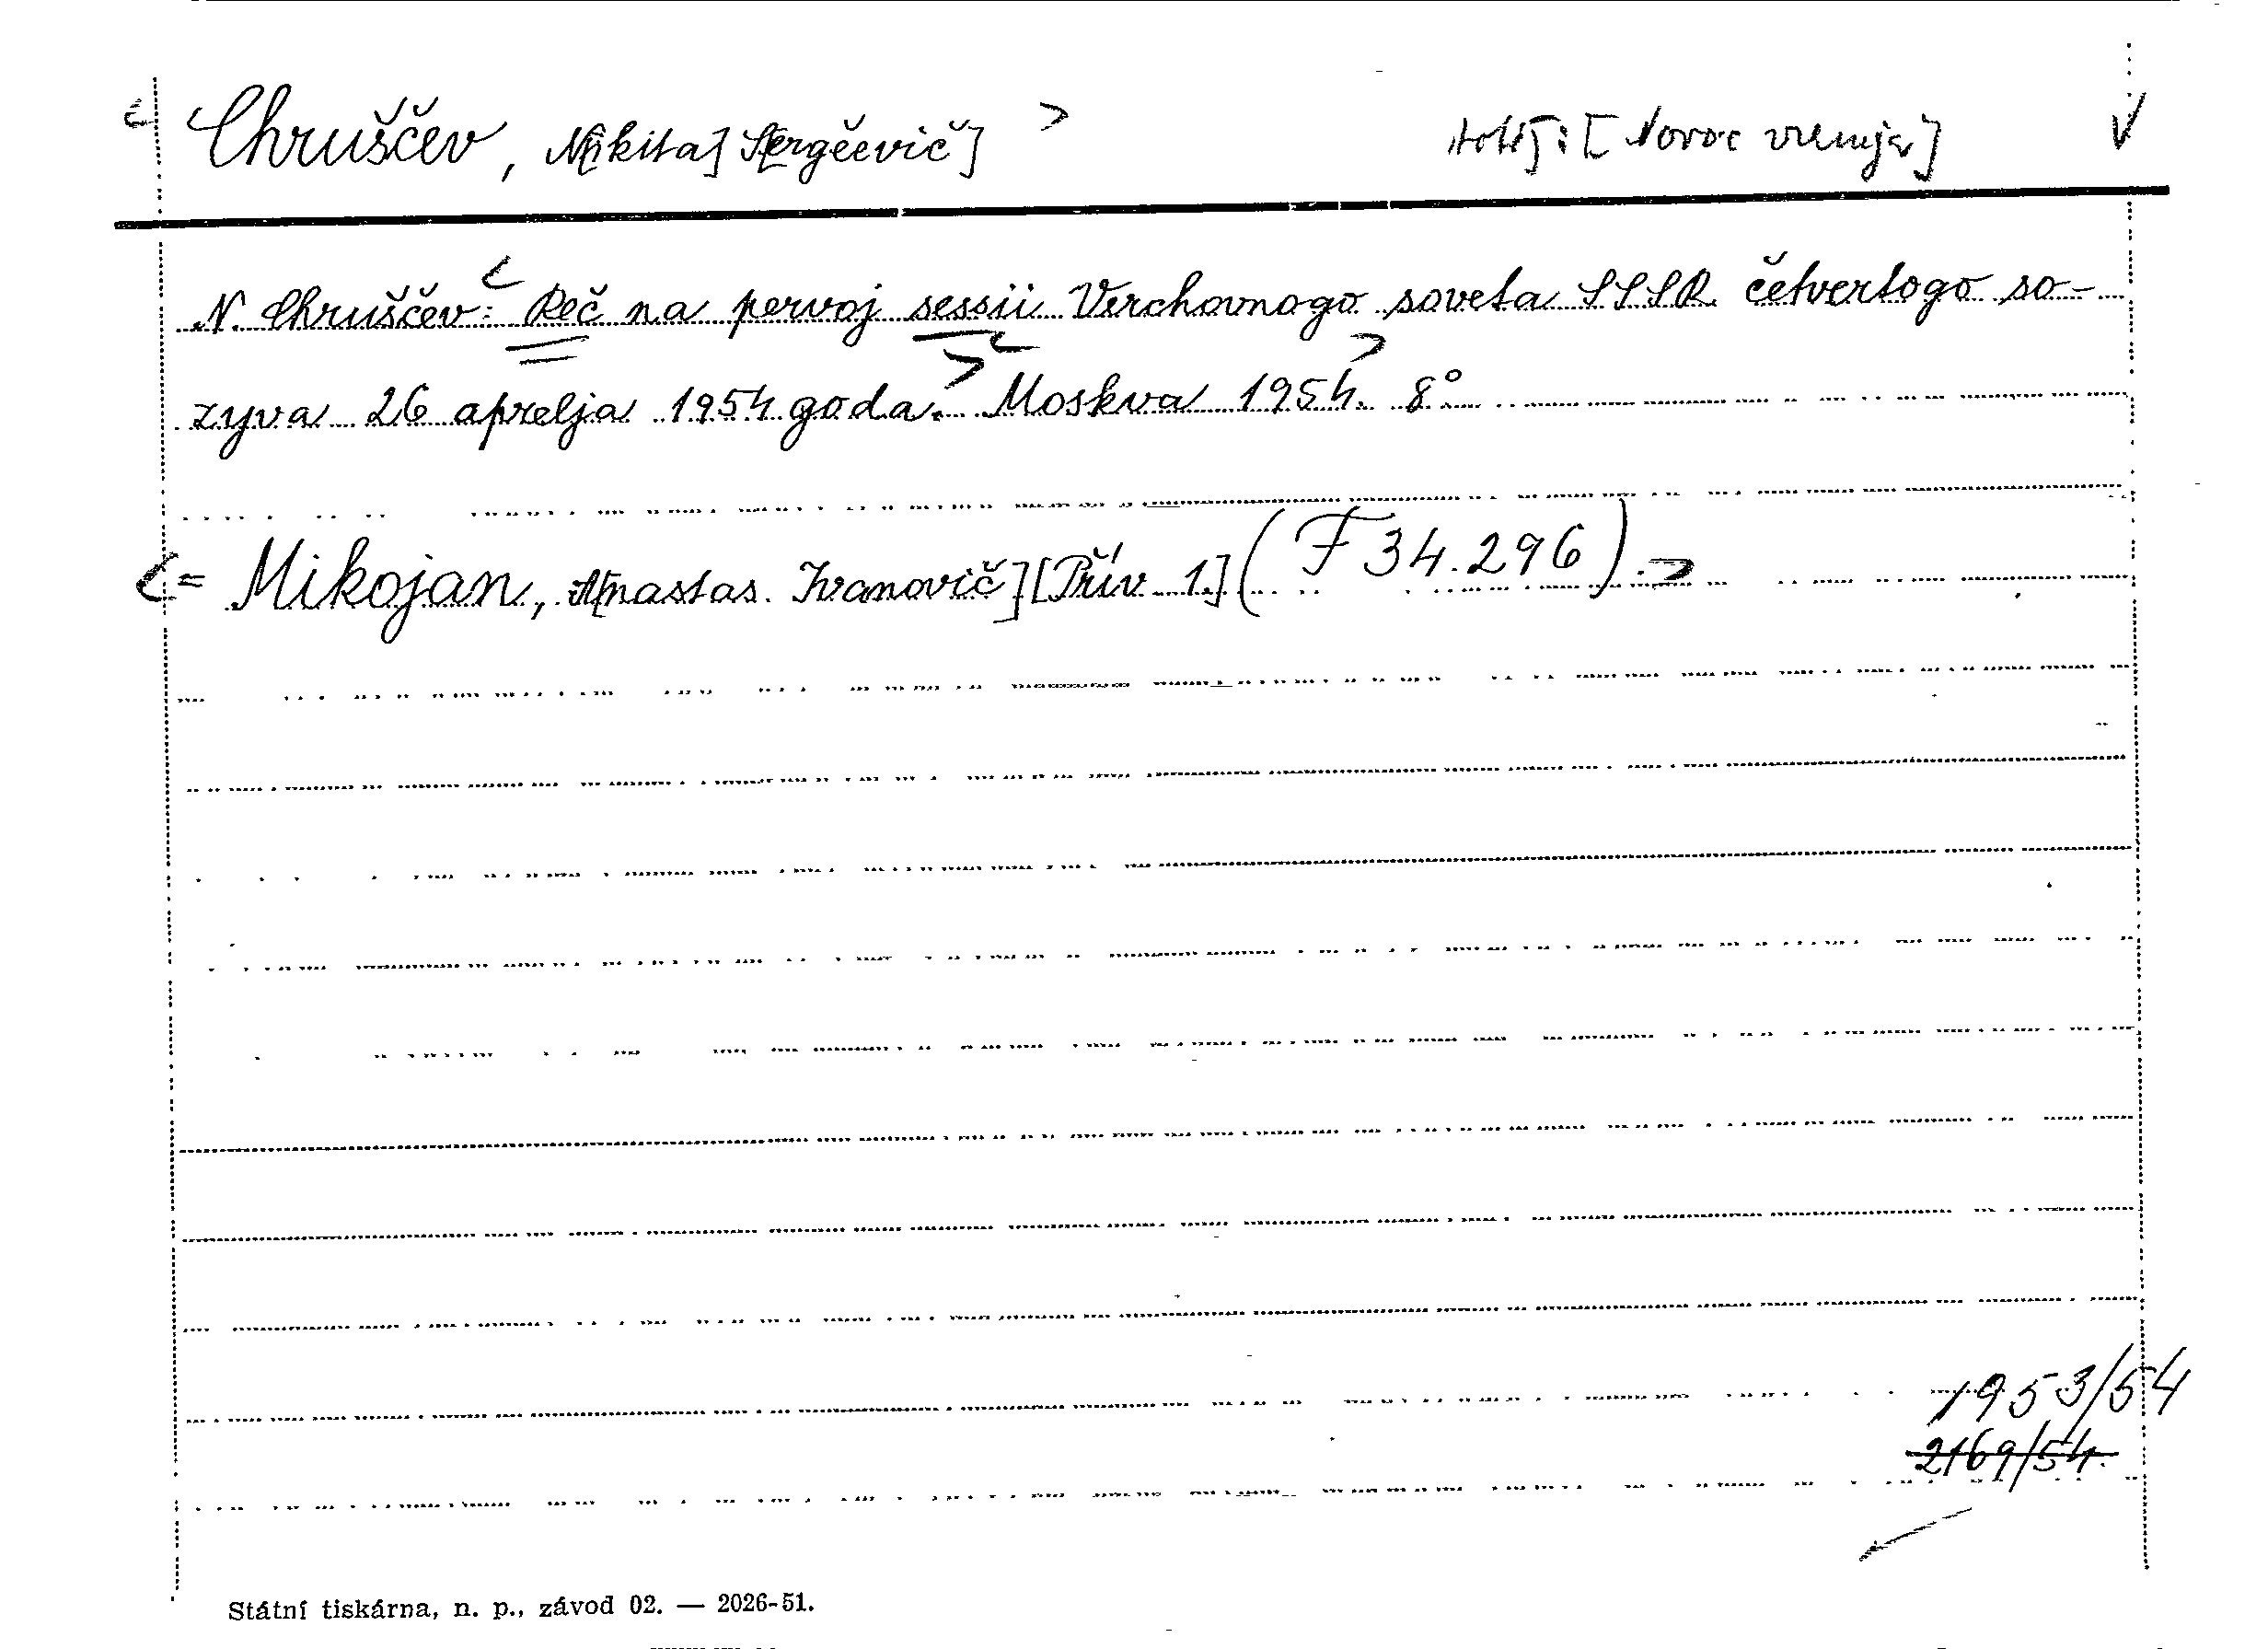 Chruščev, N[ikita] S[ergěevič]
[Novoe vremja]
N. Chruščev: Reč na pervoj sessii Verchovnogo soveta SSSR četvertogo so-
zyva 26 aprelja 1954 goda. Moskva 1954. 8°
= Mikojan, A[nastas. Ivanovič] [Přív. 1.] (F 34.296)
1953/54
2169/54.
Státní tiskárna, n. p., závod 02. — 2026-51.